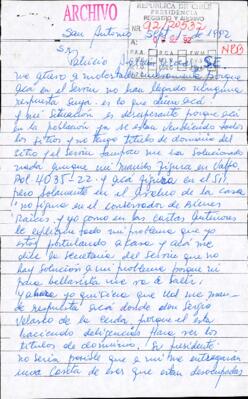 ARCHIVO
REPUBLICA DE CHILE
PRESIDENCIA
REGISTRO Y ARCHIVO
NR. 92/20537
A:
P.A.A. R.C.A.
San Antonio Sept 1992
Sr
Patricio
me atrevo a molestarlo nuevamente porque
acá en el Serviu no han llegado ninguna
respuesta suya. es lo que dicen acá
y mi situación es desesperante porque acá
en la población ya se están vendiendo todos
los sitios y no tengo título de dominio del
sitio y el Serviu tampoco me ha solucionado
nada aunque mi marido figura en Valpo.
Rol 4035-22 y acá figura en el SII
pero solamente en el Avaluo de la casa
no figura en el conservador de Bienes
Raices. y yo como en las cartas Anteriores
le explicaba todo mi problema que yo
estoy postulando a casa y acá me
dice la Secretaria del Serviu que no
hay solución a mi problema porque mi
para bellavista no va a salir,
y ahora yo quisiera que Ud me man-
de respuesta acá donde don Sergio
Velasco de la Cerda, porque él está
haciendo deligencias para ver los
títulos de dominio, Sr presidente
no sería posible que a mí me entregaran
una Caseta de esas que están desocupadas